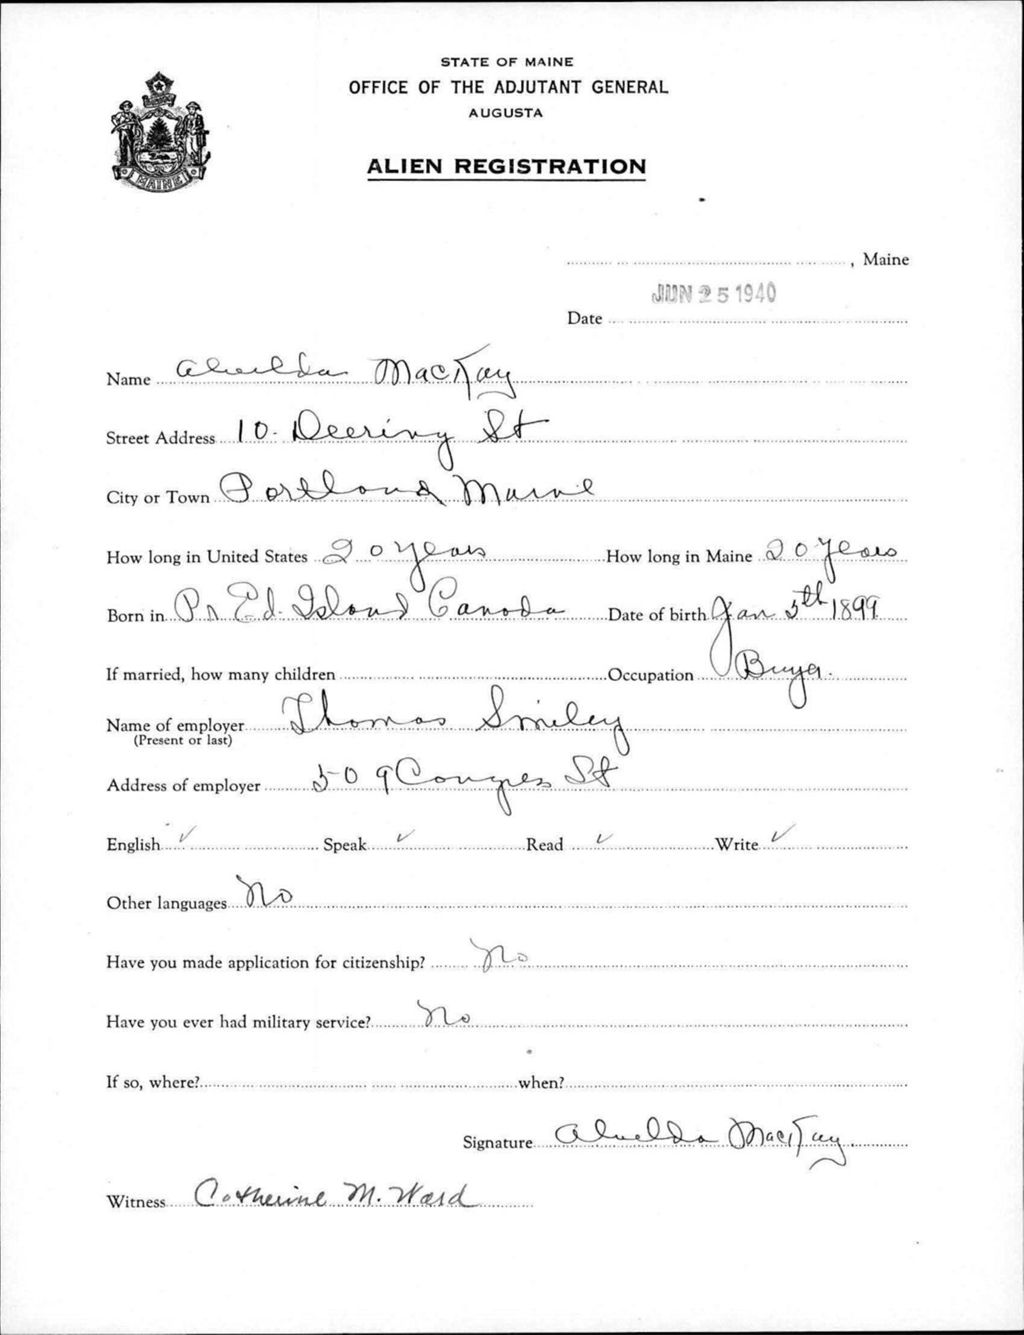 STATE OF MAINE
OFFICE OF THE ADJUTANT GENERAL
AUGUSTA
ALIEN REGISTRATION
MAINE
, Maine
JUN 25 1940
Date
Name Alvelda MacKay
Street Address 10. Deering St
City or Town Portland Maine
How long in United States 20 years How long in Maine 20 years
Born in Pr. Ed. Island Canada Date of birth Jan 5th 1899
If married, how many children Occupation Buyer.
Name of employer Thomas Smiley
(Present or last)
Address of employer 509 Congres St
English ✓ Speak ✓ Read ✓ Write ✓
Other languages No
Have you made application for citizenship? No
Have you ever had military service? No
If so, where? when?
Signature Alvelda MacKay
Witness Catherine M. Ward